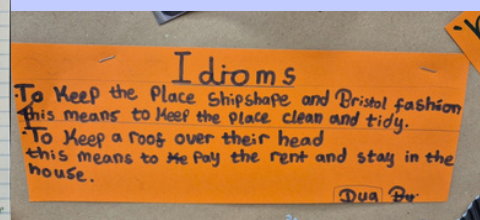 Idioms
To Keep the Place Shipshape and Bristol fashion
this means to Keep the Place clean and tidy.
To Keep a roof over their head
this means to Pay the rent and stay in the
house.
Dua